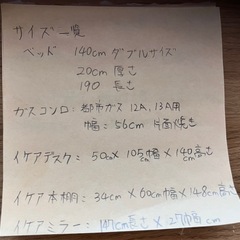 サイズ一覧
ベッド 140cm ダブルサイズ
20cm 厚さ
190 長さ
ガスコンロ: 都市ガス 12A、13A用
幅: 56cm 片面焼き
イケアデスク: 50cm×105cm幅×140cm高さ
イケア本棚: 34cm×60cm幅×148cm高さ
イケアミラー: 147cm長さ×27幅cm